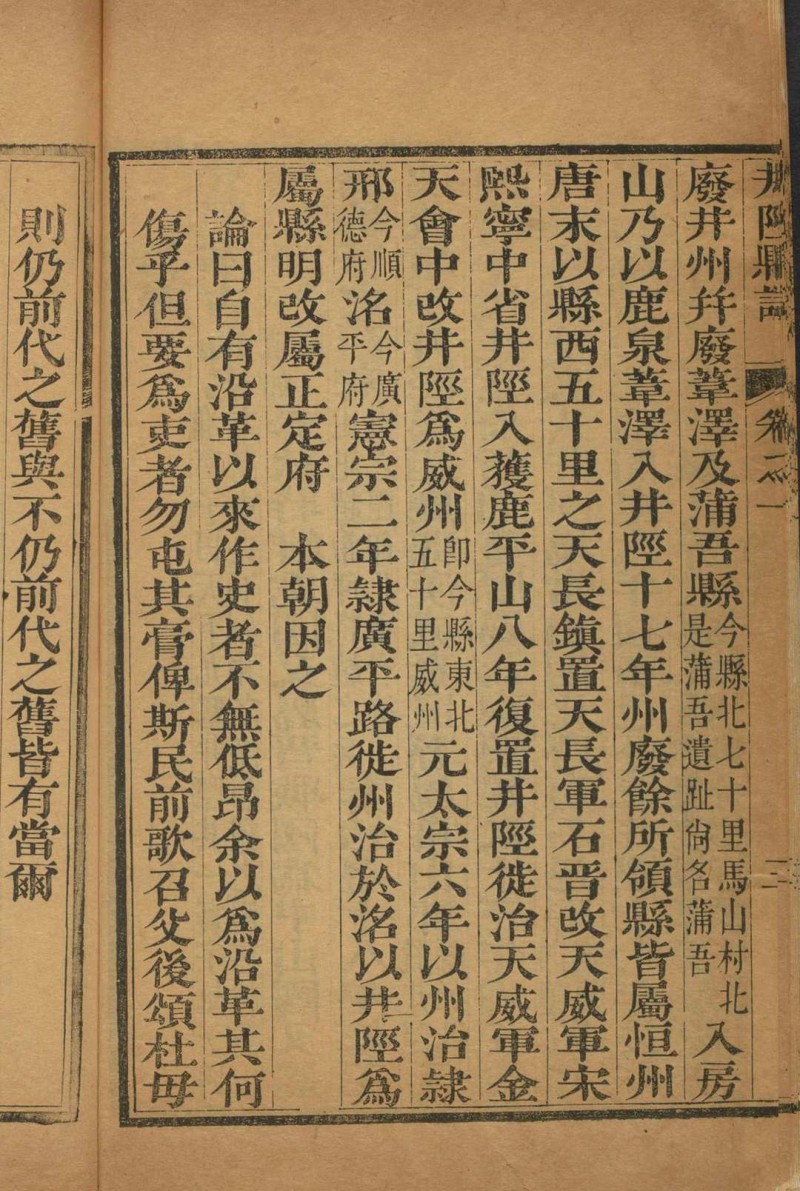 井陘縣誌 卷之一 二
廢井州幷廢葦澤及蒲吾縣今縣北七十里馬山村北是蒲吾遺趾尙名蒲吾入房
山乃以鹿泉葦澤入井陘十七年州廢餘所領縣皆屬恒州
唐末以縣西五十里之天長鎮置天長軍石晋改天威軍宋
熙寧中省井陘入獲鹿平山八年復置井陘徙治天威軍金
天會中改井陘爲威州卽今縣東北五十里威州元太宗六年以州治隷
邢今順德府洺今廣平府憲宗二年隷廣平路徙州治於洺以井陘爲
屬縣明改屬正定府 本朝因之
論曰自有沿革以來作史者不無低昂余以爲沿革其何
傷乎但要爲吏者勿屯其膏俾斯民前歌召父後頌杜毋
則仍前代之舊與不仍前代之舊皆有當爾